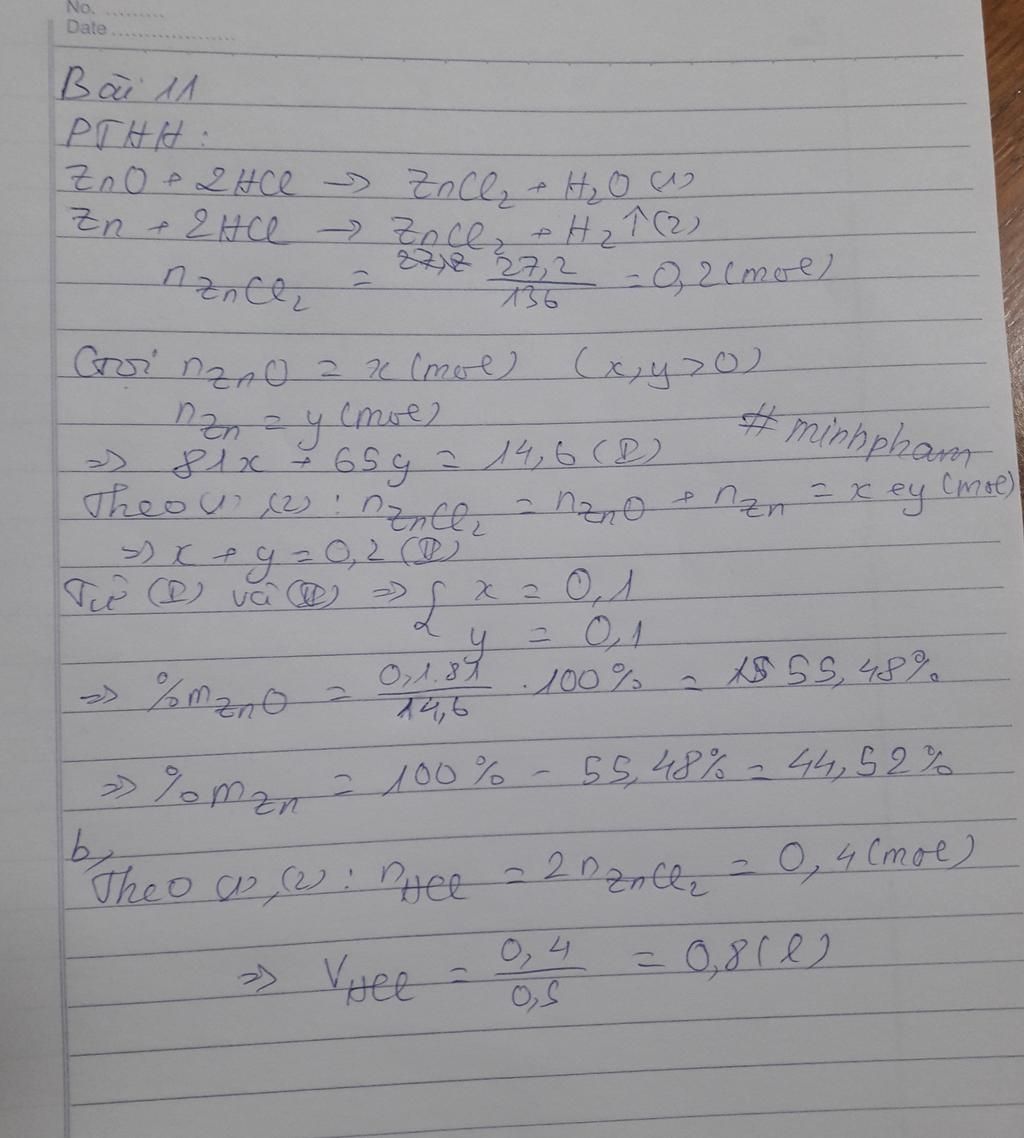 No. .........
Date ...................
Bài 11
PTHH:
ZnO + 2HCl → ZnCl₂ + H₂O (1)
Zn + 2HCl → ZnCl₂ + H₂↑ (2)
nZnCl₂ = 27,2/136 = 0,2 (mol)
Gọi nZnO = x (mol) (x, y > 0)
nZn = y (mol)
#minhpham
=> 81x + 65y = 14,6 (I)
Theo (1), (2): nZnCl₂ = nZnO + nZn = x + y (mol)
=> x + y = 0,2 (II)
Từ (I) và (II) => { x = 0,1
y = 0,1
=> %mZnO = 0,1.81/14,6 . 100% = 55,48%
=> %mZn = 100% - 55,48% = 44,52%
b,
Theo (1), (2): nHCl = 2nZnCl₂ = 0,4 (mol)
=> VHCl = 0,4/0,5 = 0,8 (l)